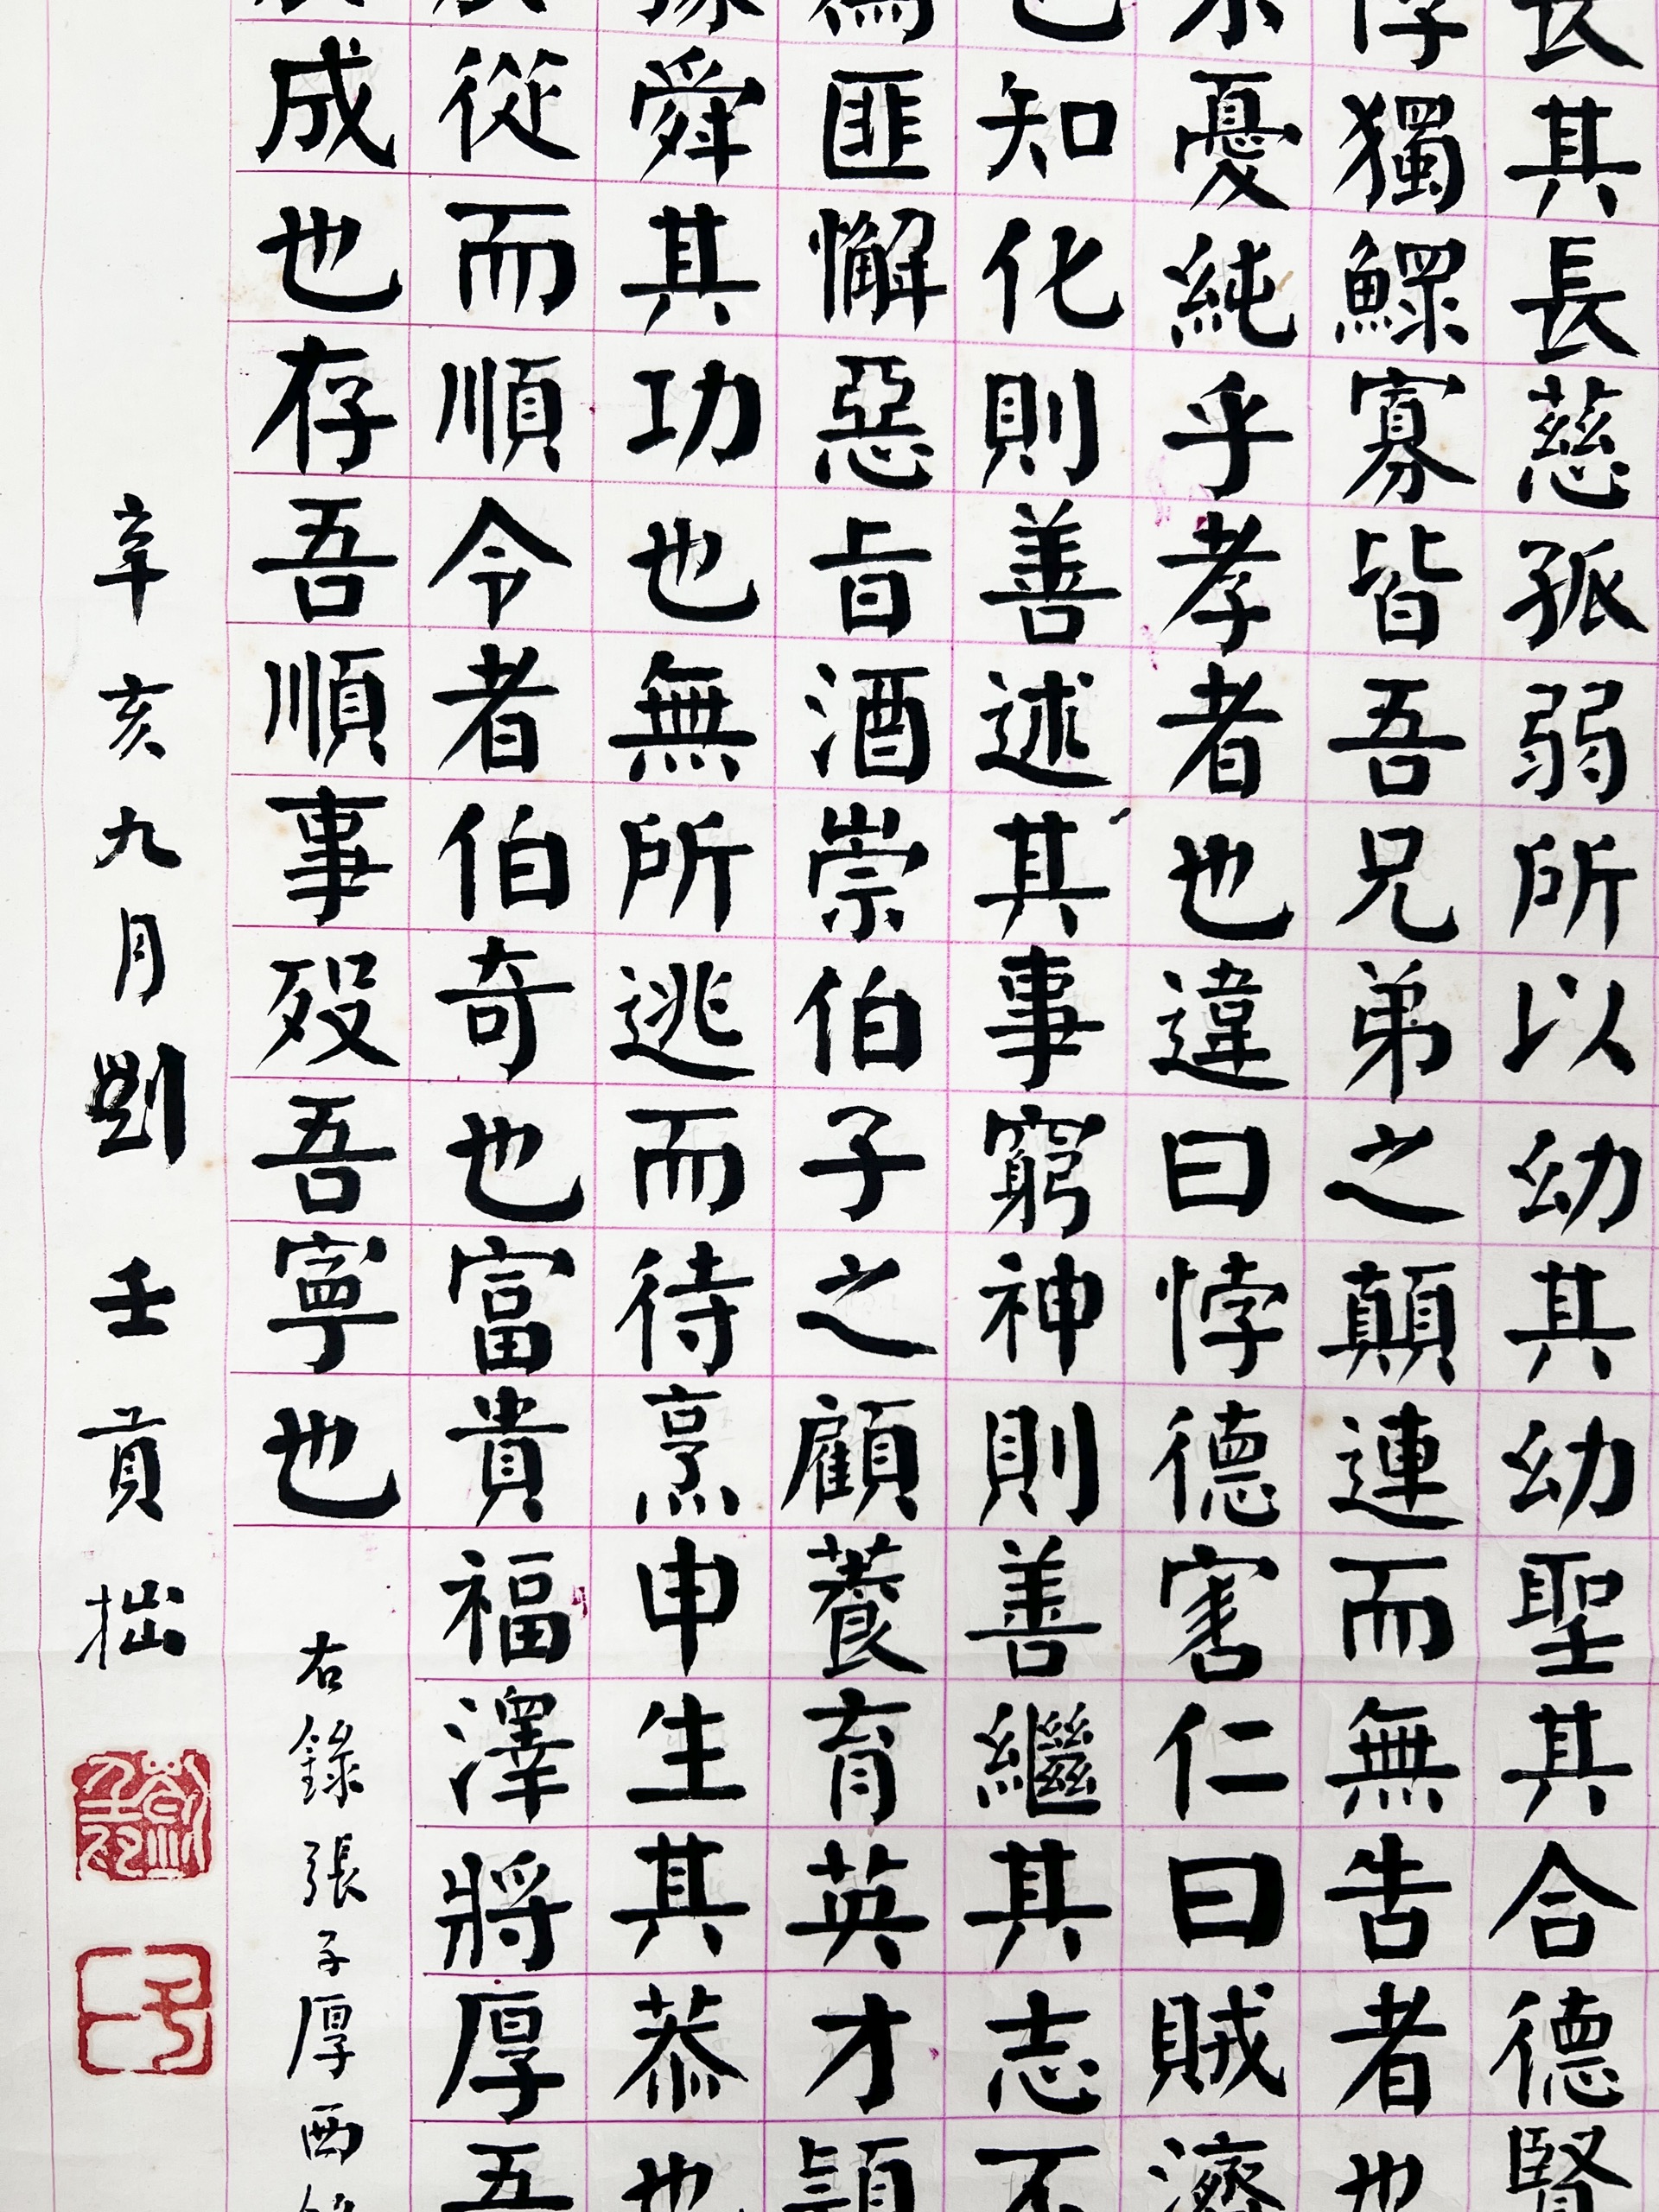 長其長慈孤弱所以幼其幼聖其合德賢
獨鰥寡皆吾兄弟之顛連而無告者也
不憂純乎孝者也違曰悖德害仁曰賊濟
也知化則善述其事窮神則善繼其志不
為匪懈惡旨酒崇伯子之顧養育英才穎
豫舜其功也無所逃而待烹申生其恭也
從而順令者伯奇也富貴福澤將厚吾
成也存吾順事歿吾寧也
右錄張子厚西銘
辛亥九月劉壬貢拙